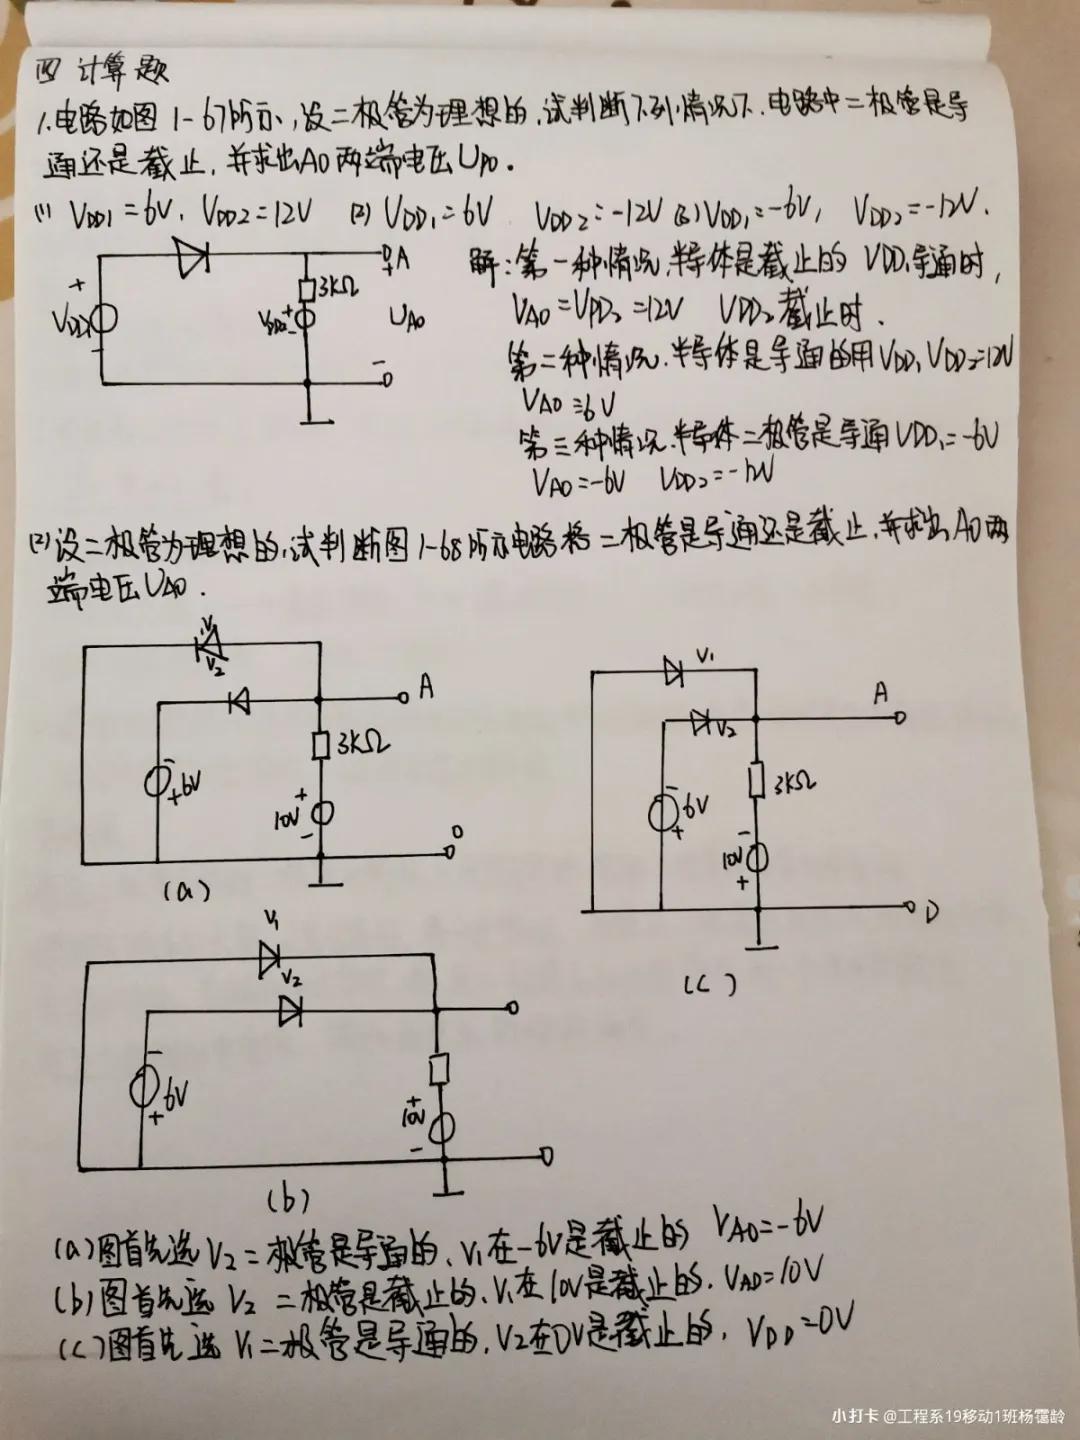 四 计算题
1.电路如图1-67所示,设二极管为理想的,试判断下列情况下.电路中二极管是导
通还是截止,并求出AO两端电压UAO.
(1) VDD1=6V. VDD2=12V (2) VDD1=6V VDD2=-12V (3) VDD1=-6V, VDD2=-12V.
A
+
3KΩ
+
VDD1
VDD2
+
-
UAO
-
-
O
解:第一种情况,半导体是截止的 VDD1导通时,
VAO=VDD2=12V VDD2截止时.
第二种情况.半导体是导通的用VDD1 VDD2=12V
VAO=6V
第三种情况.半导体二极管是导通VDD1=-6V
VAO=-6V VDD2=-12V
(2)设二极管为理想的,试判断图1-68所示电路 二极管是导通还是截止,并求出AO两
端电压UAO.
V1
V2
A
3KΩ
-
6V
+
+
10V
-
O
(a)
V1
A
V2
3KΩ
-
6V
+
-
10V
+
D
(c)
V1
V2
-
6V
+
+
10V
-
(b)
(a)图首先选V2二极管是导通的.V1在-6V是截止的 VAO=-6V
(b)图首先选V2 二极管是截止的.V1在10V是截止的.VAO=10V
(c)图首先选V1二极管是导通的,V2在0V是截止的,VDD=0V
小打卡 @工程系19移动1班杨霭龄